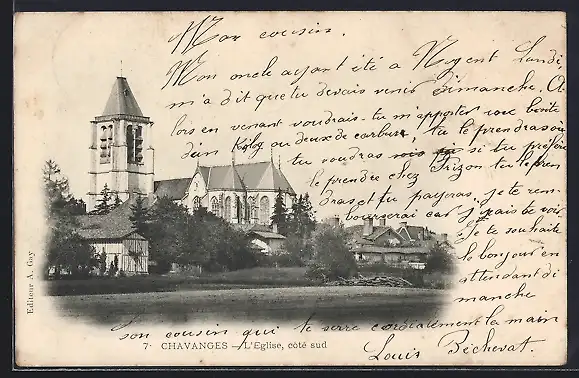 Mon cousin.
Mon oncle ayant été a Nogent Lundi
m'a dit que tu devais venir dimanche. A
lors en venant voudrais-tu m'apporter une boite
d'un Kilog ou deux de carbure tu le prendras où
tu voudras si tu préfère
le prendre chez Frizon tu le pren
dras et tu payeras. je te rem
bourserai car j'y vais te voir.
Je te souhaite
le bonjour en
attendant di
manche
ton cousin qui te serre cordialement la main
Louis Bécherat.
7. CHAVANGES — L'Eglise, côté sud
Editeur A. Guy